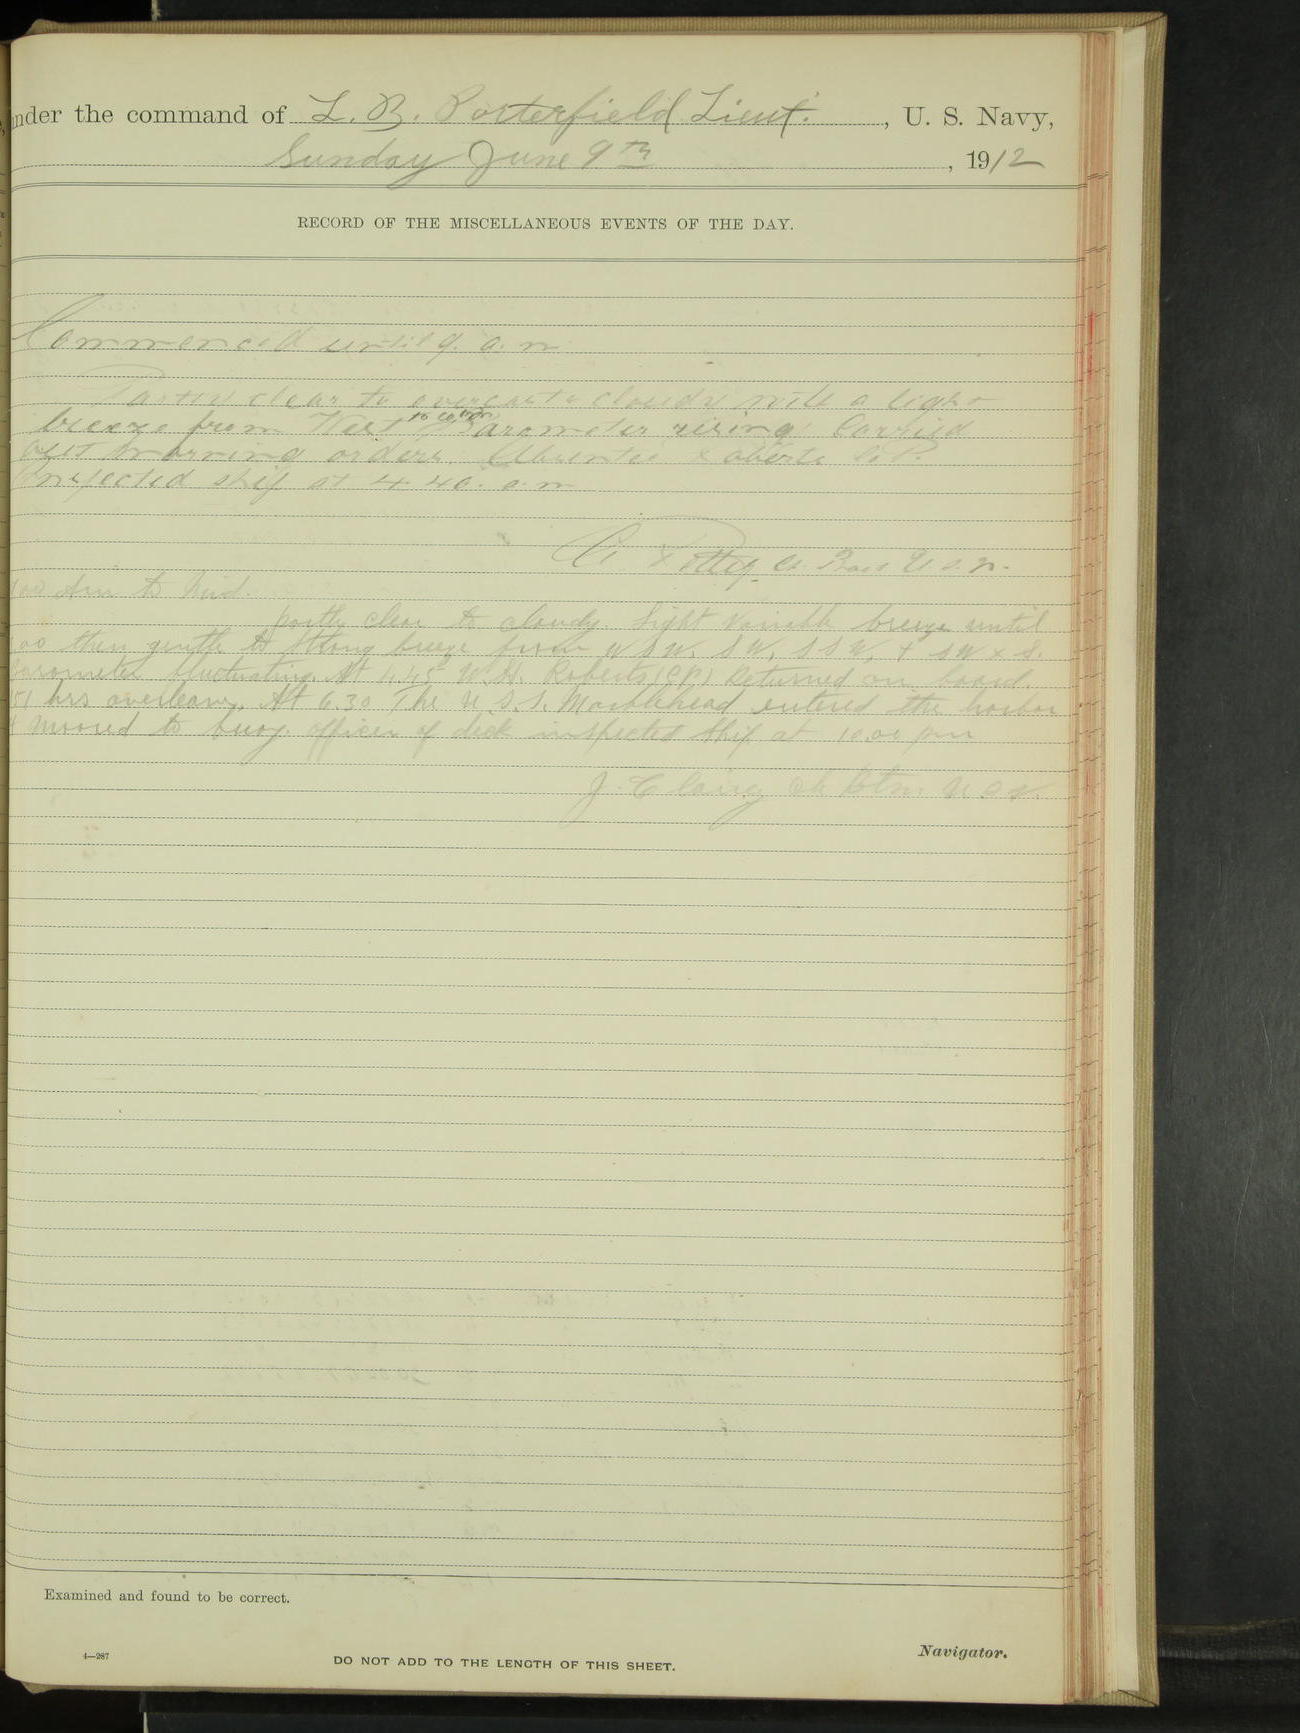 under the command of L. B. Porterfield Lieut. , U. S. Navy,
Sunday June 9th , 1912
RECORD OF THE MISCELLANEOUS EVENTS OF THE DAY.
Commenced until 9. a. m
Partly clear to overcast & cloudy with a light
breeze from West to calm Barometer rising Carried
out morning orders.
Inspected ship at 4 40. a. m
to Mid.
partly clear to cloudy. Light variable breeze until
00 then gentle to strong breeze from W S W, S W, S S W, + S W x S.
Barometer fluctuating. At 1.45 W. H. Roberts (CP) Returned on board.
51 hrs overleave. At 6.30 The U.S.S. Marblehead entered the harbor
+ moored to buoy. officer of deck inspected ship at 10.00 pm
Examined and found to be correct.
4—287
DO NOT ADD TO THE LENGTH OF THIS SHEET.
Navigator.